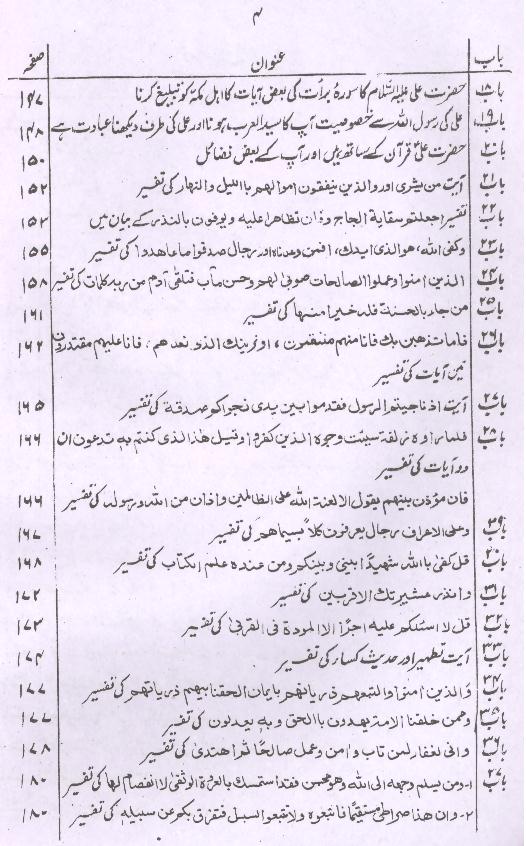 ۴
باب عنوان صفحہ
باب ۱۸ حضرت علی علیہ السلام کا سورۂ برأت کی بعض آیات کا اہل مکہ کو تبلیغ کرنا ۱۴۷
باب ۱۹ علی کی رسول اللہ سے خصوصیت آپ کا سید العرب ہونا اور علی کی طرف دیکھنا عبادت ہے ۱۴۸
باب ۲۰ حضرت علی قرآن کے ساتھ ہیں اور آپ کے بعض فضائل ۱۵۰
باب ۲۱ آیت من یشری اور والذین ینفقون اموالھم باللیل والنھار کی تفسیر ۱۵۲
باب ۲۲ تفسیر اجعلتم سقایة الحاج وان تظاھرا علیہ و یوفون بالنذر کے بیان میں ۱۵۳
باب ۲۳ وکفی اللہ، ھوالذی ایدک، افمن وعدناہ اور رجال صدقوا ما عاھدوا کی تفسیر ۱۵۵
باب ۲۴ الذین امنوا وعملوا الصالحات طوبی لھم وحسن مآب فتلقی آدم من ربہ کلمات کی تفسیر ۱۵۸
باب ۲۵ من جاء بالحسنة فلہ خیر منھا کی تفسیر ۱۶۱
باب ۲۶ فاما نذھبن بک فانا منھم منتقمون، او نرینک الذی وعدنھم، فانا علیھم مقتدرون ۱۶۲
تین آیات کی تفسیر
باب ۲۷ آیت اذ ناجیتم الرسول فقدموا بین یدی نجواکم صدقة کی تفسیر ۱۶۵
باب ۲۸ فلما راوہ زلفة سیئت وجوہ الذین کفروا وقیل ھذا الذی کنتم بہ تدعون ان ۱۶۶
دو آیات کی تفسیر
فاذن مؤذن بینھم یقول الا لعنة اللہ علی الظالمین واذان من اللہ ورسولہ کی تفسیر ۱۶۶
باب ۲۹ وعلی الاعراف رجال یعرفون کلاً بسیماھم کی تفسیر ۱۶۷
باب ۳۰ قل کفی باللہ شھیداً بینی وبینکم ومن عندہ علم الکتاب کی تفسیر ۱۶۸
باب ۳۱ وانذر عشیرتک الاقربین کی تفسیر ۱۷۲
باب ۳۲ قل لا اسئلکم علیہ اجرًا الا المودة فی القربی کی تفسیر ۱۷۳
باب ۳۳ آیت تطہیر اور حدیث کساء کی تفسیر ۱۷۴
باب ۳۴ والذین امنوا واتبعھم ذریاتھم بایمان الحقنا بھم ذریاتھم کی تفسیر ۱۷۷
باب ۳۵ وممن خلقنا الامة یھدون بالحق وبہ یعدلون کی تفسیر ۱۷۷
باب ۳۶ وانی لغفار لمن تاب وامن وعمل صالحًا ثم اھتدی کی تفسیر ۱۷۸
باب ۳۷ ۱- ومن یسلم وجھہ الی اللہ وھو محسن فقد استمسک بالعروة الوثقی لا انفصام لھا کی تفسیر ۱۸۰
۲- وان ھذا صراطی مستقیمًا فاتبعوہ ولا تتبعوا السبل فتفرق بکم عن سبیلہ کی تفسیر ۱۸۰